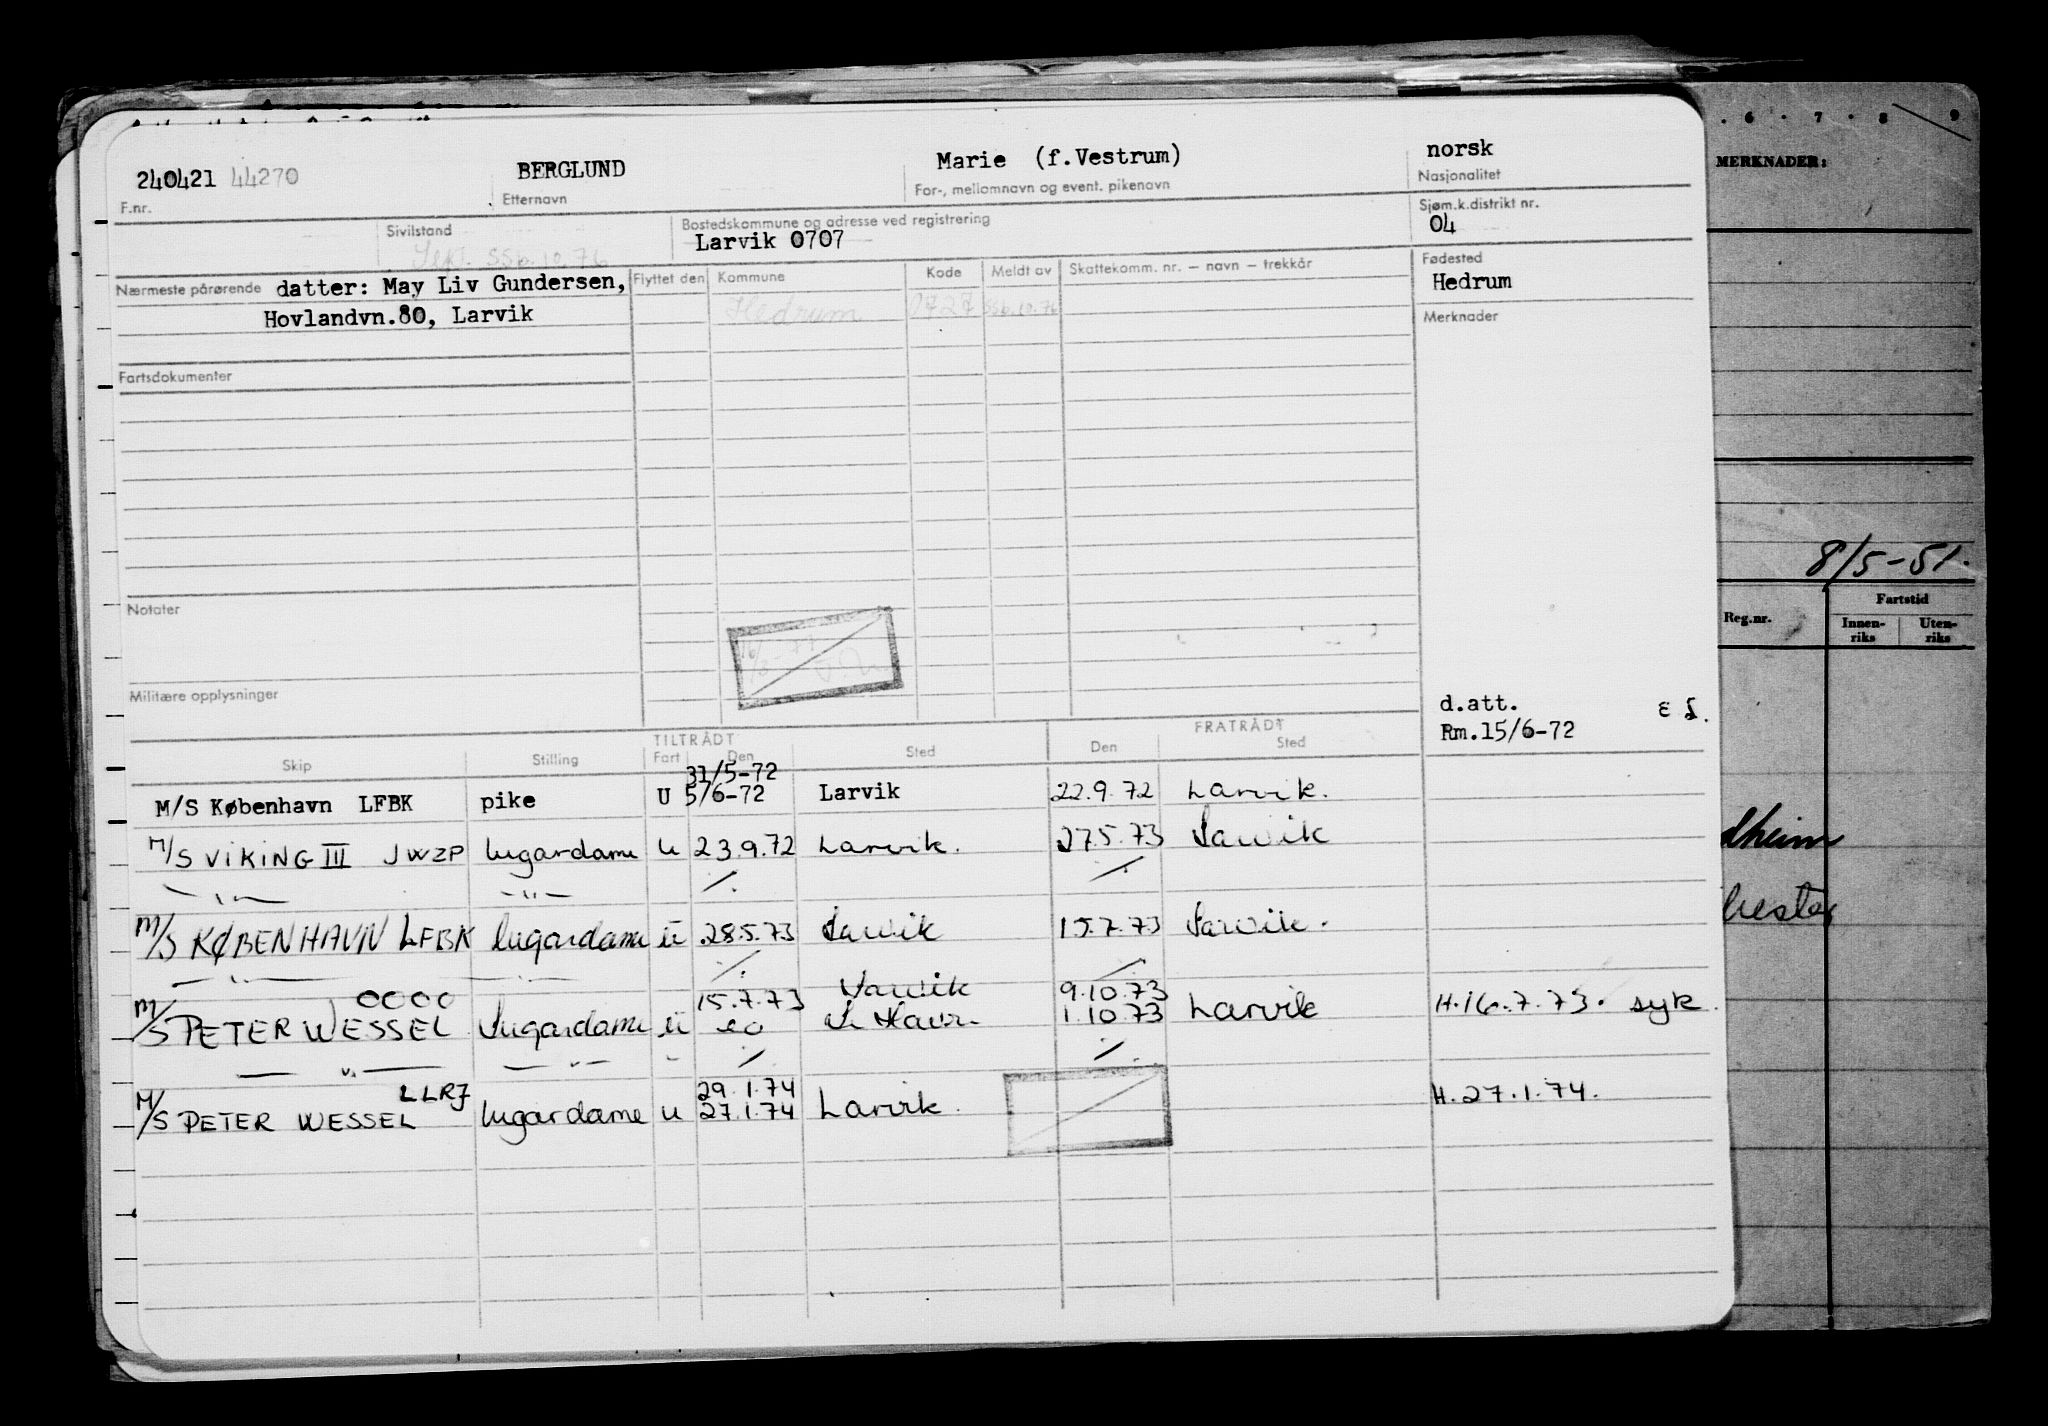 240421 44270 BERGLUND Marie (f.Vestrum) norsk
F.nr. Etternavn For-, mellomnavn og event. pikenavn Nasjonalitet
Sivilstand Bostedskommune og adresse ved registrering Sjøm.k.distrikt nr.
SSb.10.76 Larvik 0707 04
Nærmeste pårørende datter: May Liv Gundersen, Flyttet den Kommune Kode Meldt av Skattekomm. nr. – navn – trekkår Fødested
Hedrum
Hovlandvn.80, Larvik Hedrum 0727 SSb.10.76 Merknader
Fartsdokumenter
Notater
Militære opplysninger
d.att. ES.
Rm.15/6-72
TILTRÅDT FRATRÅDT
Skip Stilling Fart Den Sted Den Sted
31/5-72
M/S København LFBK pike U 5/6-72 Larvik 22.9.72 Larvik.
M/S VIKING III JWZP lugardame u 23.9.72 Larvik. 27.5.73 Larvik
— " — — " — /. /.
M/S KØBENHAVN LFBK lugardame u 28.5.73 Larvik 15.7.73 Larvik.
— " — — " — /. /.
OOOO 15.7.73 Larvik 9.10.73
M/S PETER WESSEL lugardame u 1.10.73 Larvik H.16.7.73. syk.
— " — — " — " /. /.
LLRJ 29.1.74
M/S PETER WESSEL lugardame u 27.1.74 Larvik. H.27.1.74.
. 6 . 7 . 8 9
MERKNADER:
8/5-51.
Reg.nr. Fartstid
Innen-riks Uten-riks
dheim